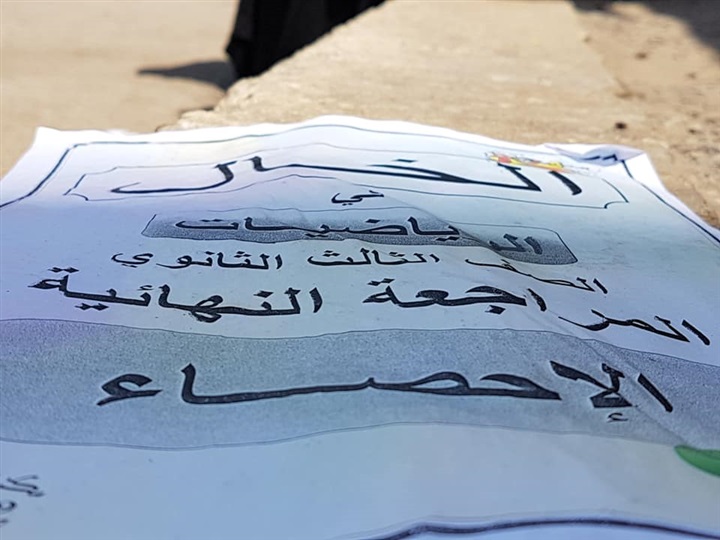 الخال
في
الرياضيات
الصف الثالث الثانوي
المراجعة النهائية
الإحصاء